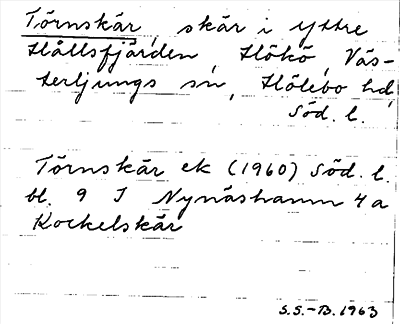 Törnskär, skär i yttre
Hållsfjärden, Hökö, Väs-
terljungs sn, Hölebo hd,
Söd. l.
Törnskär ek (1960) Söd. l.
bl. 9 I Nynäshamn 4a
Kockelskär
S.S.-B. 1963